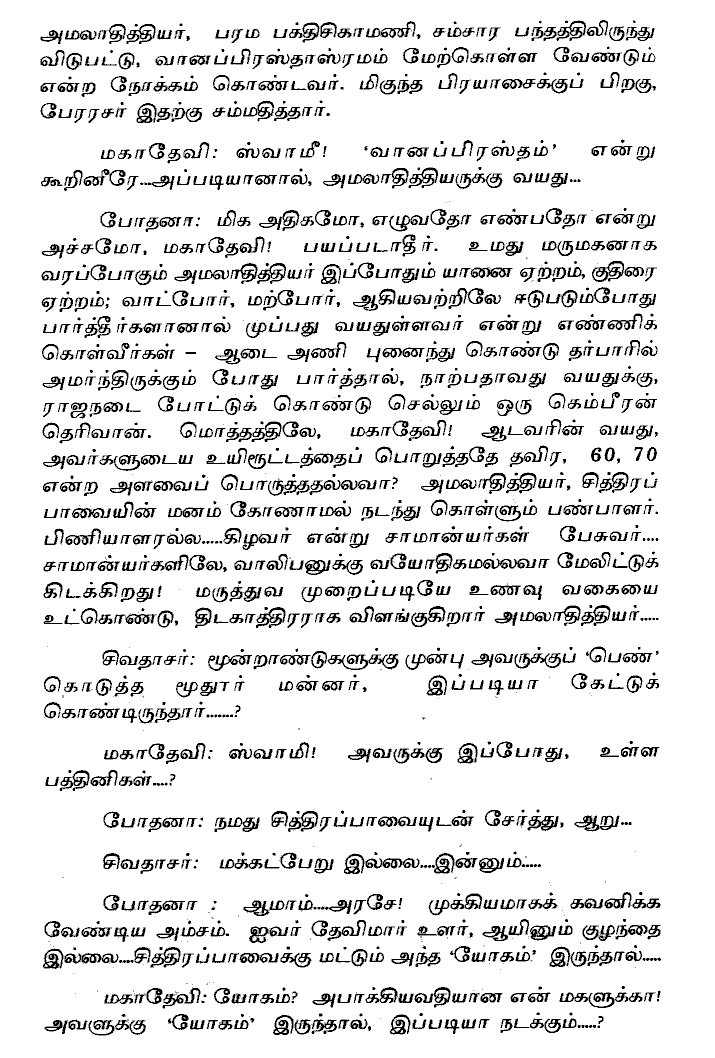 அமலாதித்தியர், பரம பக்திசிகாமணி, சம்சார பந்தத்திலிருந்து
விடுபட்டு, வானப்பிரஸ்தாஸ்ரமம் மேற்கொள்ள வேண்டும்
என்ற நோக்கம் கொண்டவர். மிகுந்த பிரயாசைக்குப் பிறகு,
பேரரசர் இதற்கு சம்மதித்தார்.
மகாதேவி: ஸ்வாமீ! ‘வானப்பிரஸ்தம்’ என்று
கூறினீரே...அப்படியானால், அமலாதித்தியருக்கு வயது...
போதனா: மிக அதிகமோ, எழுவதோ எண்பதோ என்று
அச்சமோ, மகாதேவி! பயப்படாதீர். உமது மருமகனாக
வரப்போகும் அமலாதித்தியர் இப்போதும் யானை ஏற்றம், குதிரை
ஏற்றம்; வாட்போர், மற்போர், ஆகியவற்றிலே ஈடுபடும்போது
பார்த்தீர்களானால் முப்பது வயதுள்ளவர் என்று எண்ணிக்
கொள்வீர்கள் – ஆடை அணி புனைந்து கொண்டு தர்பாரில்
அமர்ந்திருக்கும் போது பார்த்தால், நாற்பதாவது வயதுக்கு,
ராஜநடை போட்டுக் கொண்டு செல்லும் ஒரு கெம்பீரன்
தெரிவான். மொத்தத்திலே, மகாதேவி! ஆடவரின் வயது,
அவர்களுடைய உயிரூட்டத்தைப் பொறுத்ததே தவிர, 60, 70
என்ற அளவைப் பொருத்ததல்லவா? அமலாதித்தியர், சித்திரப்
பாவையின் மனம் கோணாமல் நடந்து கொள்ளும் பண்பாளர்.
பிணியாளரல்ல.....கிழவர் என்று சாமான்யர்கள் பேசுவர்....
சாமான்யர்களிலே, வாலிபனுக்கு வயோதிகமல்லவா மேலிட்டுக்
கிடக்கிறது! மருத்துவ முறைப்படியே உணவு வகையை
உட்கொண்டு, திடகாத்திரராக விளங்குகிறார் அமலாதித்தியர்.....
சிவதாசர்: மூன்றாண்டுகளுக்கு முன்பு அவருக்குப் ‘பெண்’
கொடுத்த மூதூர் மன்னர், இப்படியா கேட்டுக்
கொண்டிருந்தார்.......?
மகாதேவி: ஸ்வாமி! அவருக்கு இப்போது, உள்ள
பத்தினிகள்....?
போதனா: நமது சித்திரப்பாவையுடன் சேர்த்து, ஆறு...
சிவதாசர்: மக்கட்பேறு இல்லை....இன்னும்.....
போதனா : ஆமாம்....அரசே! முக்கியமாகக் கவனிக்க
வேண்டிய அம்சம். ஐவர் தேவிமார் உளர், ஆயினும் குழந்தை
இல்லை....சித்திரப்பாவைக்கு மட்டும் அந்த ‘யோகம்’ இருந்தால்.....
மகாதேவி: யோகம்? அபாக்கியவதியான என் மகளுக்கா!
அவளுக்கு ‘யோகம்’ இருந்தால், இப்படியா நடக்கும்.....?